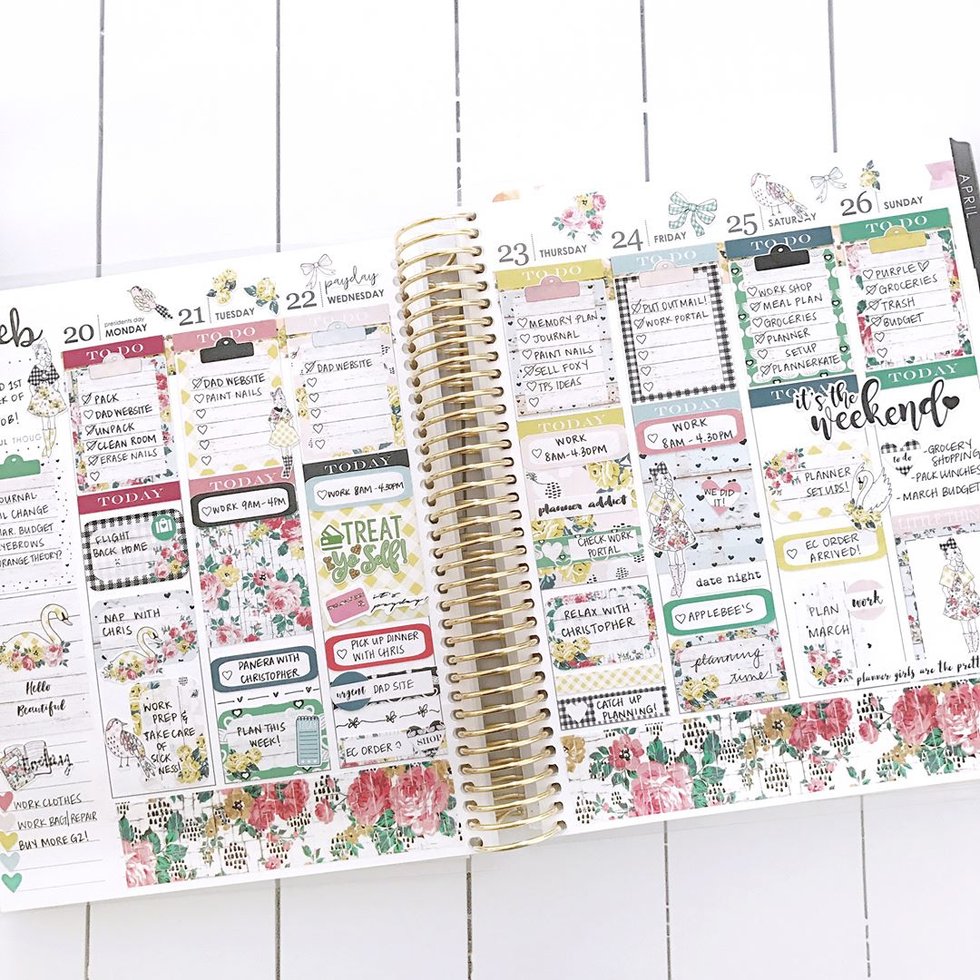 20
presidents day
MONDAY
TO DO
PACK
DAD WEBSITE
UNPACK
CLEAN ROOM
ERASE NAILS
TODAY
FLIGHT
BACK HOME
NAP WITH
CHRIS
WORK
PREP &
TAKE CARE
OF
SICK
NESS!
21
TUESDAY
TO DO
DAD WEBSITE
PAINT NAILS
TODAY
WORK 9AM-4PM
PANERA WITH
CHRISTOPHER
PLAN THIS
WEEK!
22
payday
WEDNESDAY
TO DO
DAD WEBSITE
TODAY
WORK 8AM-4:30PM
TREAT
Yo Self!
it's
payday!
PICK UP DINNER
WITH CHRIS
urgent
DAD SITE
EC ORDER
SHOP
eb
1ST
OB!
JOURNAL
CHANGE
MAR. BUDGET
EYEBROWS
ORANGE THEORY?
Hello
Beautiful
WORK CLOTHES
WORK BAG/REPAIR
BUY MORE G2!
23
THURSDAY
TO DO
MEMORY PLAN
JOURNAL
PAINT NAILS
SELL FOXY
TPS IDEAS
TODAY
WORK
8AM-4:30PM
planner addict
CHECK WORK
PORTAL
RELAX WITH
CHRISTOPHER
CATCH UP
PLANNING!
24
FRIDAY
TO DO
PUT OUT MAIL!
WORK PORTAL
TODAY
WORK
8AM-4:30PM
WE DID
IT!
date night
APPLEBEE'S
planning
time!
25
SATURDAY
TO DO
WORK SHOP
MEAL PLAN
GROCERIES
PLANNER
SETUP
PLANNERKATE
TODAY
it's the
weekend
PLANNER
SET UPS!
EC ORDER
ARRIVED!
PLAN
MARCH
work
planner girls are the prett
26
SUNDAY
TO DO
PURPLE
GROCERIES
TRASH
BUDGET
TODAY
to do
-GROCERY
SHOPPING
-PACK LUNCHES
-MARCH BUDGET
APRIL